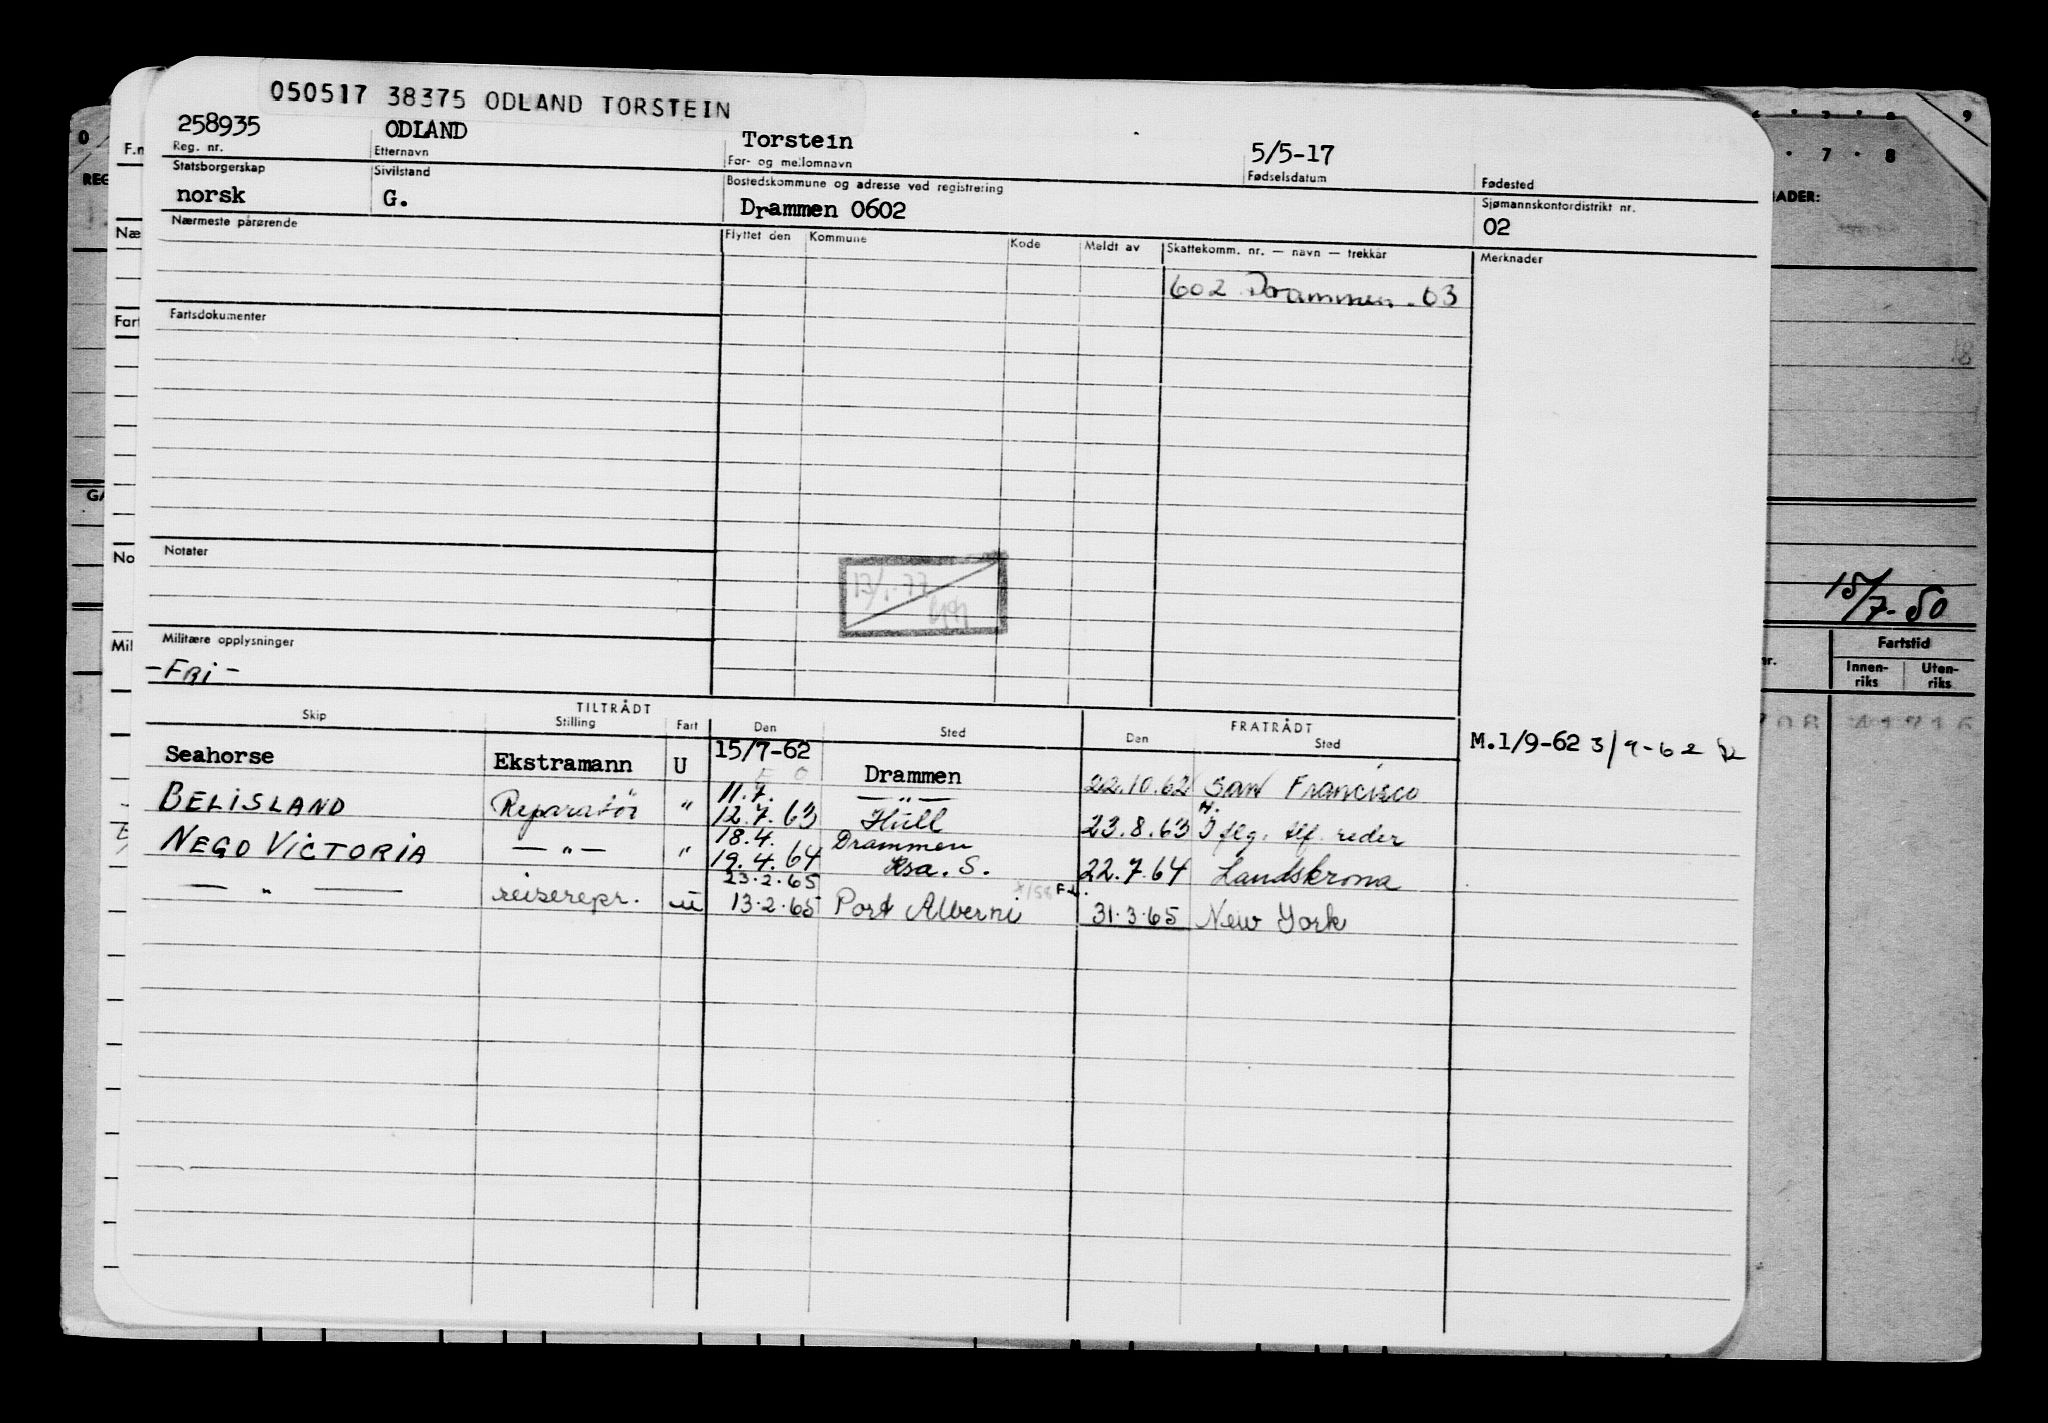 050517 38375 ODLAND TORSTEIN
258935 ODLAND Torstein 5/5-17
Reg. nr. Etternavn For- og mellomnavn Fødselsdatum Fødested
Statsborgerskap Sivilstand Bostedskommune og adresse ved registrering Sjømannskontordistrikt nr.
norsk G. Drammen 0602 02
Nærmeste pårørende Flyttet den Kommune Kode Meldt av Skattekomm. nr. — navn — trekkår Merknader
602 Drammen . 63
Fartsdokumenter
Notater
Militære opplysninger
-FRI-
TILTRÅDT FRATRÅDT
Skip Stilling Fart Den Sted Den Sted
Seahorse Ekstramann U 15/7-62 Drammen 22.10.62 San Francisco M.1/9-62 3/9-62
BELISLAND Reparatör " 11.7. — " —
12.7.63 Hull 23.8.63 flg. tlf. reder
NEGO VICTORIA — " — " 18.4. Drammen
19.4.64 S. 22.7.64 Landskrona
— " — reiserepr. u 23.2.65
13.2.65 Port Alberni 31.3.65 New York
0
F.n
REG
Næ
Fart
GA
No
Mil
9
7 · 8
NADER:
18
15/7-50
nr. Fartstid
Innen-
riks
Uten-
riks